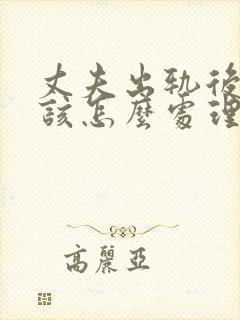 丈夫出軌後
該怎麼處理
高麗亞